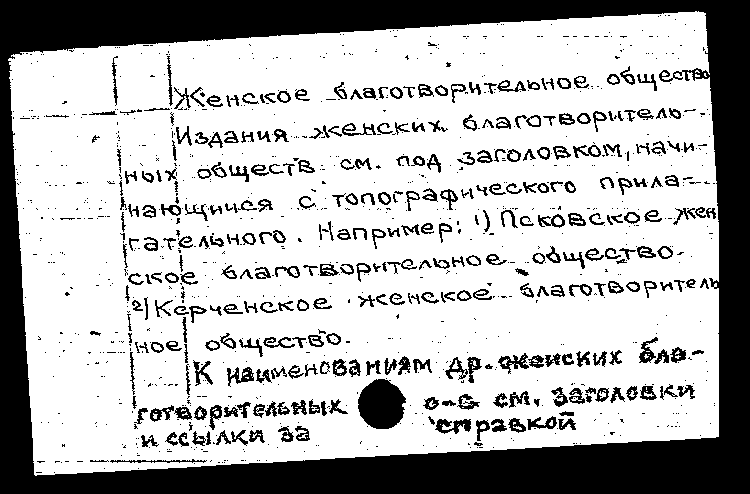 Женское благотворительное общество
Издания женских благотворитель-
ных обществ см. под заголовком, начи-
нающимся с топографического прила-
гательного. Например: 1) Псковское жен
ское благотворительное общество.
2) Керченское женское благотворитель
ное общество.
К наименованиям др. женских бла-
готворительных о-в см. заголовки
и ссылки за справкой